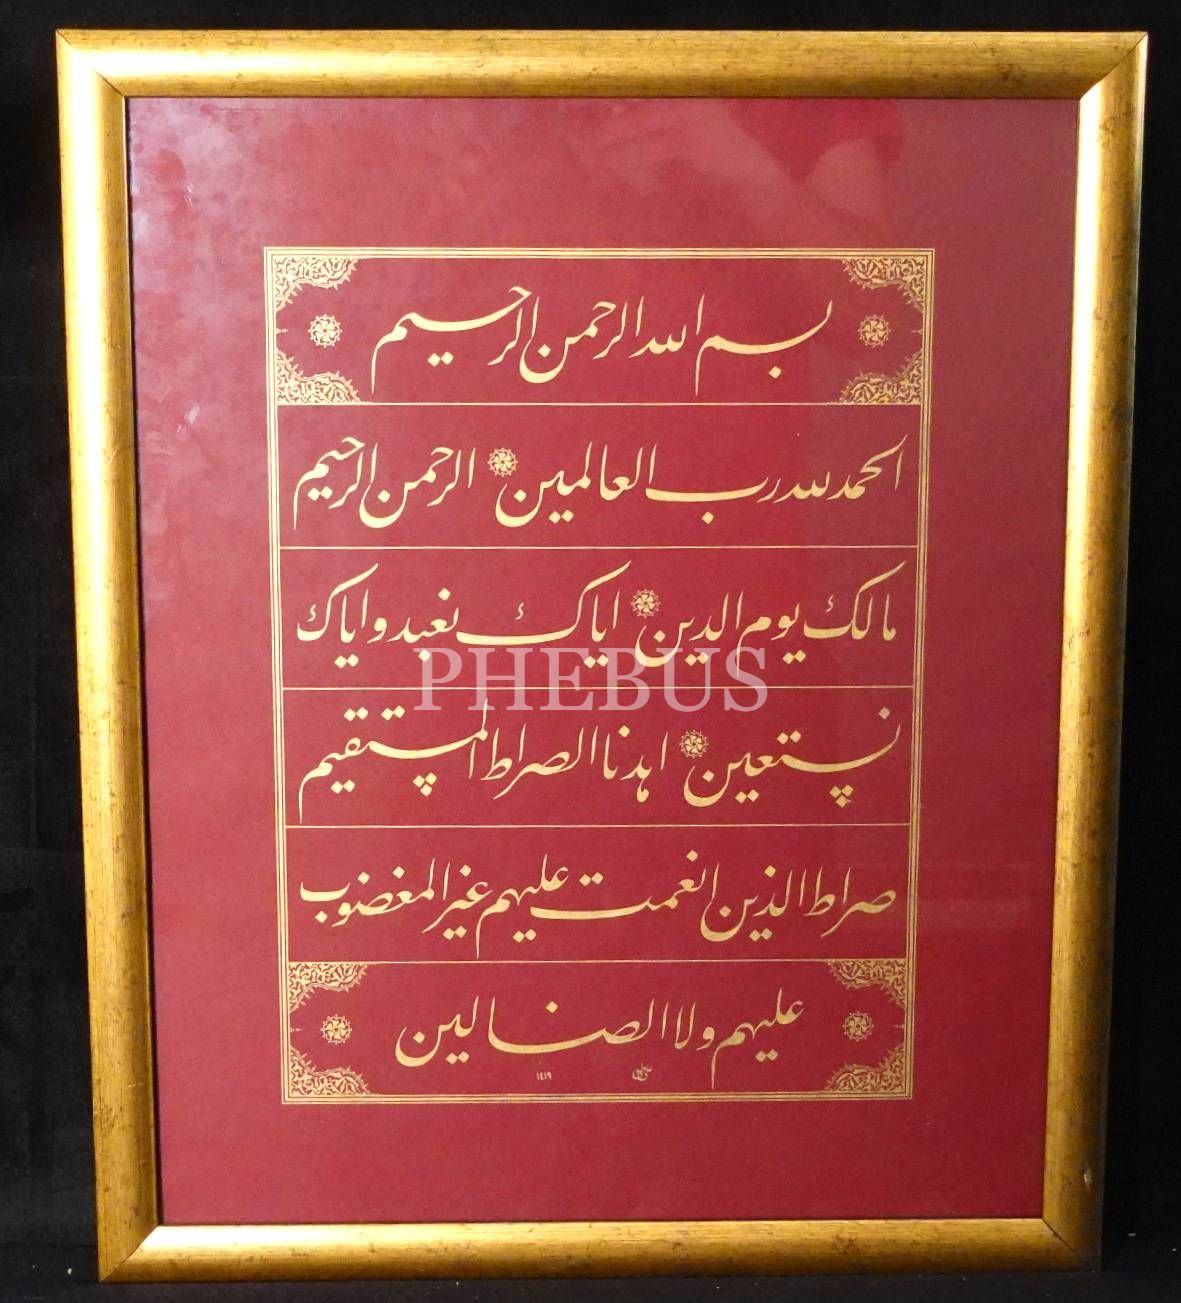 بسم الله الرحمن الرحيم
الحمد لله رب العالمين الرحمن الرحيم
مالك يوم الدين اياك نعبد واياك
PHEBUS
نستعين اهدنا الصراط المستقيم
صراط الذين انعمت عليهم غير المغضوب
عليهم ولا الضالين
١٤١٩